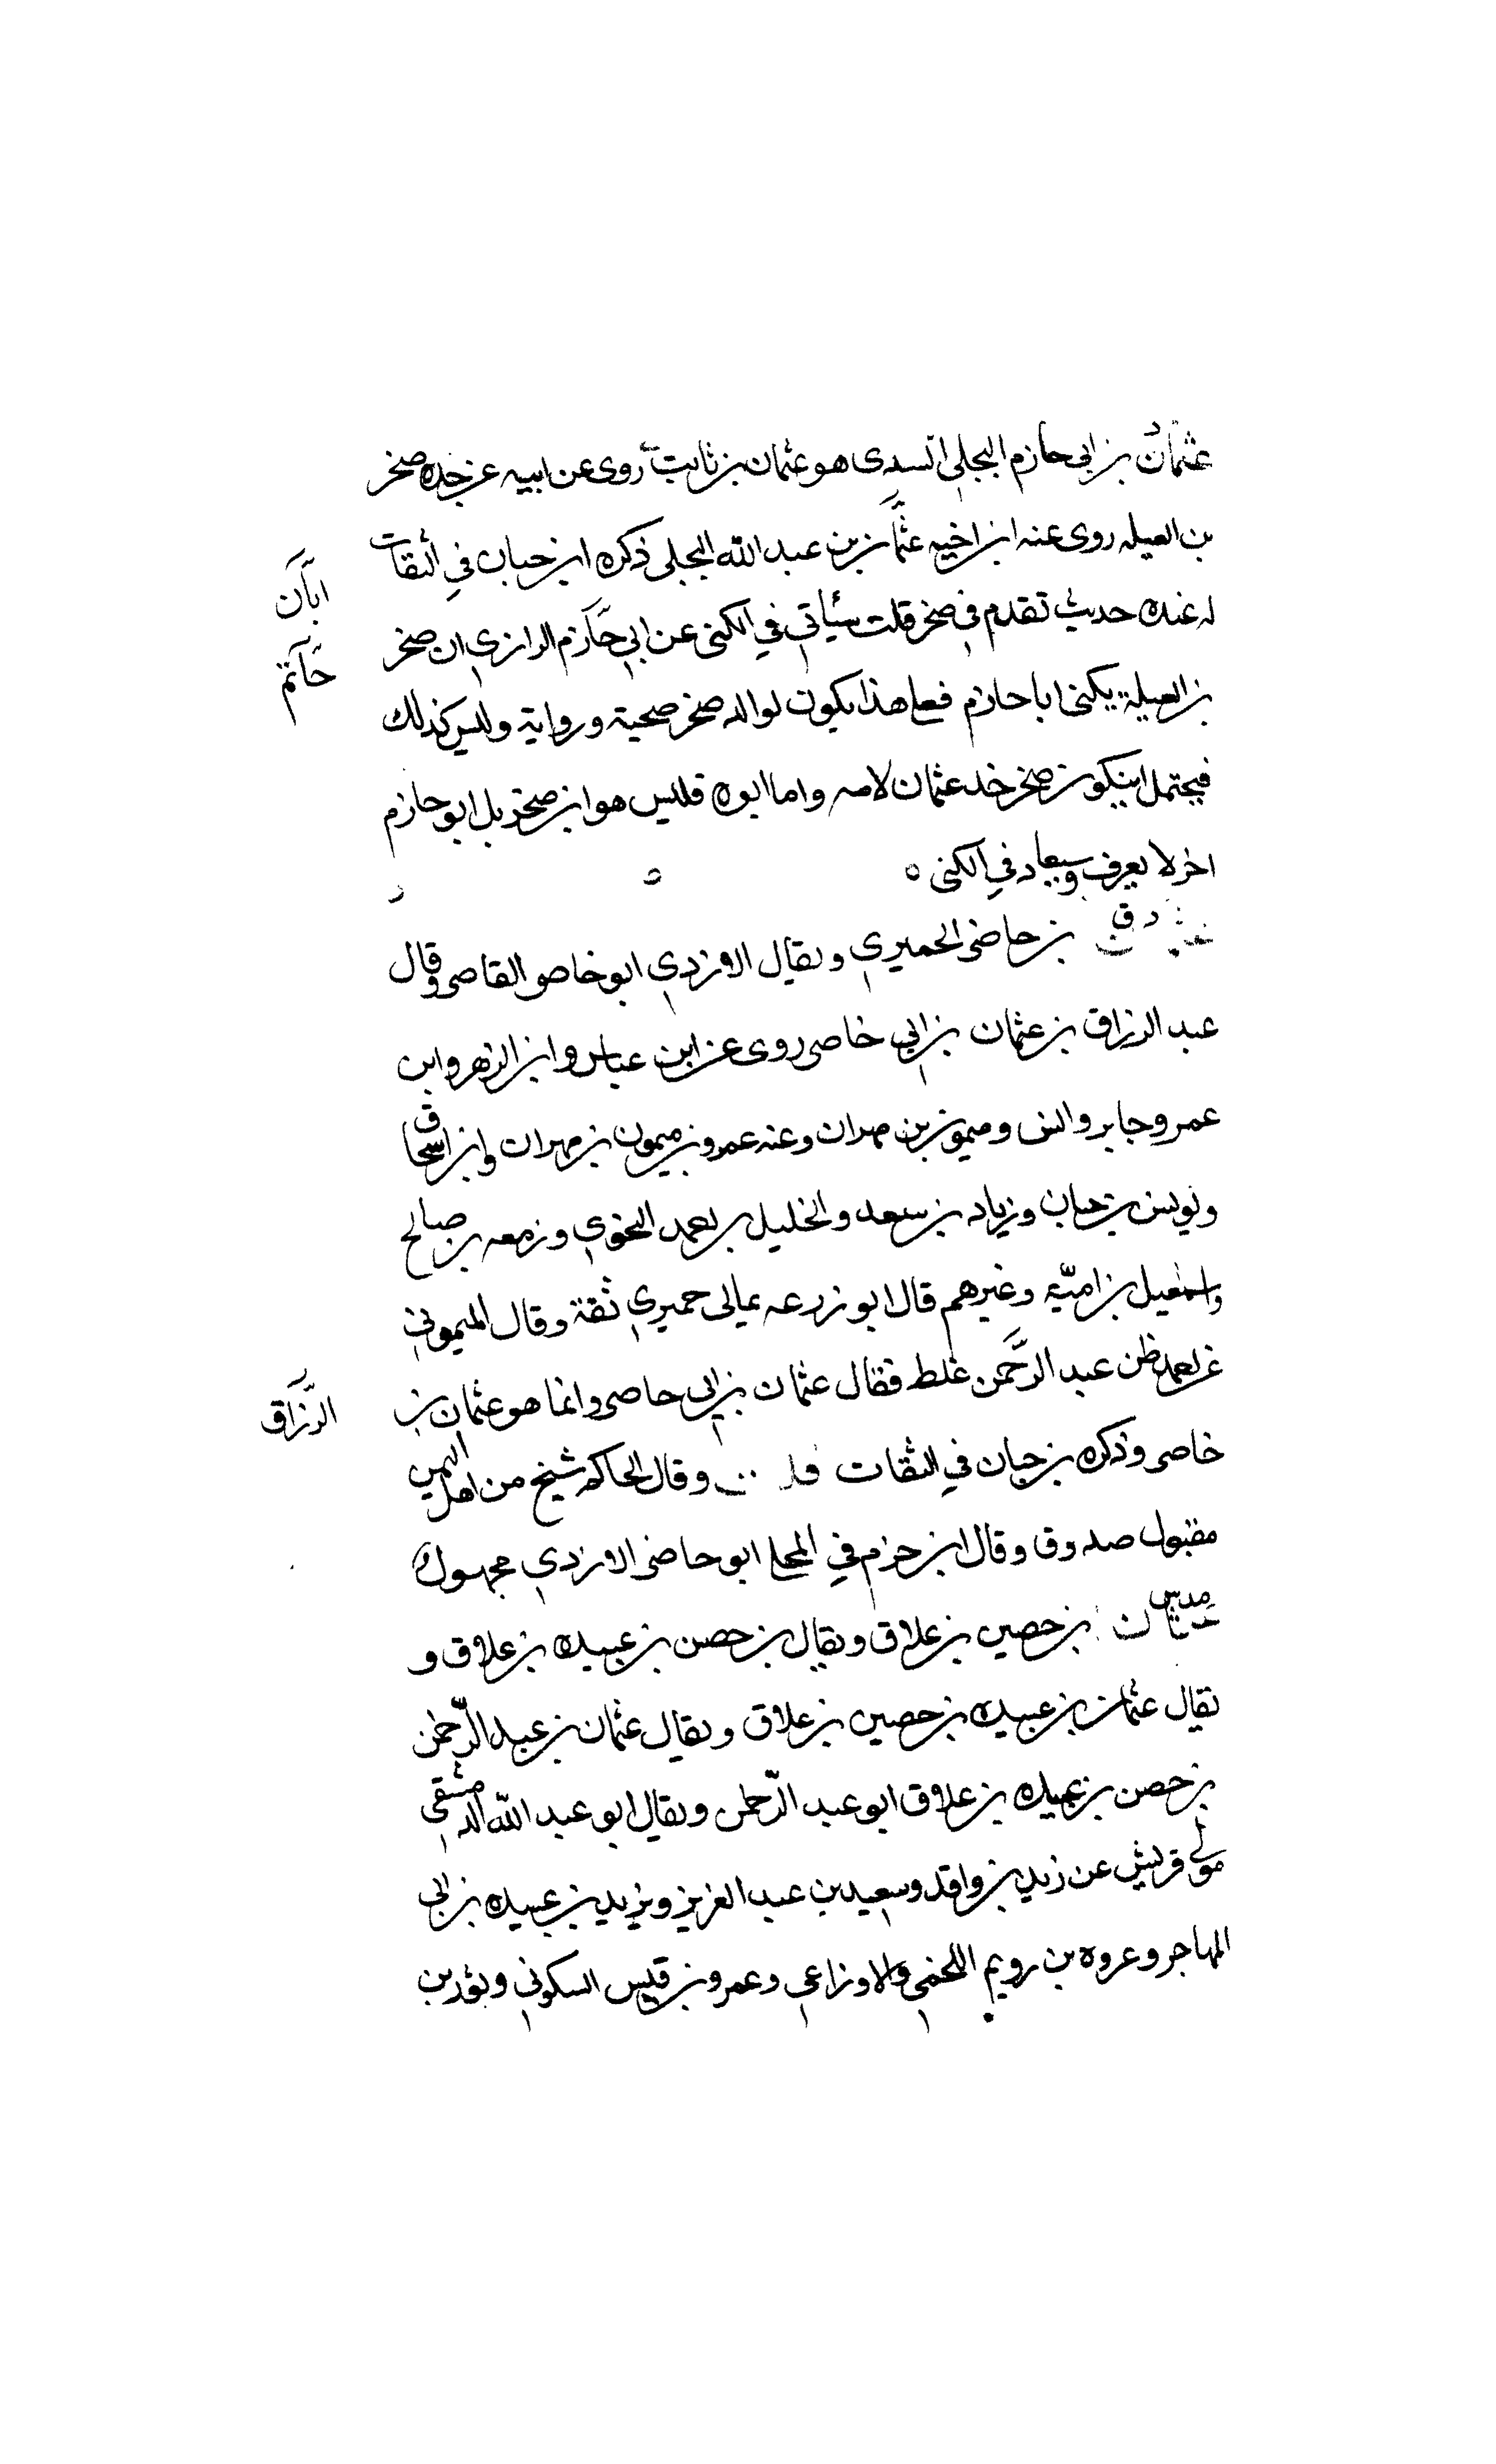 عثمان بن ابي حازم البجلي السدى هو عثمان بن ثابت روى عن ابيه عن جده صخر
بن العيله روى عنه ابن اخيه عثمان بن عبد الله البجلى ذكره ابن حبان في الثقات
ابان
له عنده حديث تقدم في صخر قلت سيأتي في الكنى عن ابي حازم الرازي ان صخر
حاتم
بن العيلة يكنى ابا حازم فعلى هذا يكون لوالده صخر صحبة ورواية وليس كذلك
فيحتمل ان يكون صخر جد عثمان لامه واما ابوه فليس هو ابن صخر بل ابو حازم
اخر لا يعرف وسيعاد في الكنى ه
د ق بن حاضر الحميري ويقال الازدي ابو حاضر القاص وقال
عبد الرزاق بن عثمان بن ابي حاضر روى عن ابن عباس وابن الزبير وابن
عمر وجابر وانس وميمون بن مهران وعنه عمرو بن ميمون بن مهران وابن اسحاق
ويونس بن خباب وزياد بن سعد والخليل بن احمد النحوي وزمعه بن صالح
واسمعيل بن اميّة وغيرهم قال ابو زرعه يمانى حميري ثقة وقال الميموني
عن احمد ظن عبد الرحمن غلط فقال عثمان بن ابي حاضر وانما هو عثمان بن
الرزاق
حاضر وذكره بن حبان في الثقات قلت وقال الحاكم شيخ من اهل اليمن
مقبول صدوق وقال ابن حزم في المحلى ابو حاضر الازدي مجهول
عثمان بن حصين بن علاق ويقال بن حصن بن عبيده بن علاق و
يقال عثمان بن عبيده بن حصين بن علاق ويقال عثمان بن عبد الرّحمن
بن حصن بن عبيده بن علاق ابو عبد الرّحمن ويقال ابو عبد الله الدمشقي
مولى قريش عن زيد بن واقد وسعيد بن عبد العزيز ويزيد بن عبيده بن ابي
المهاجر وعروه بن رويم اللخمي والاوزاعي وعمرو بن قيس السكوني وثور بن